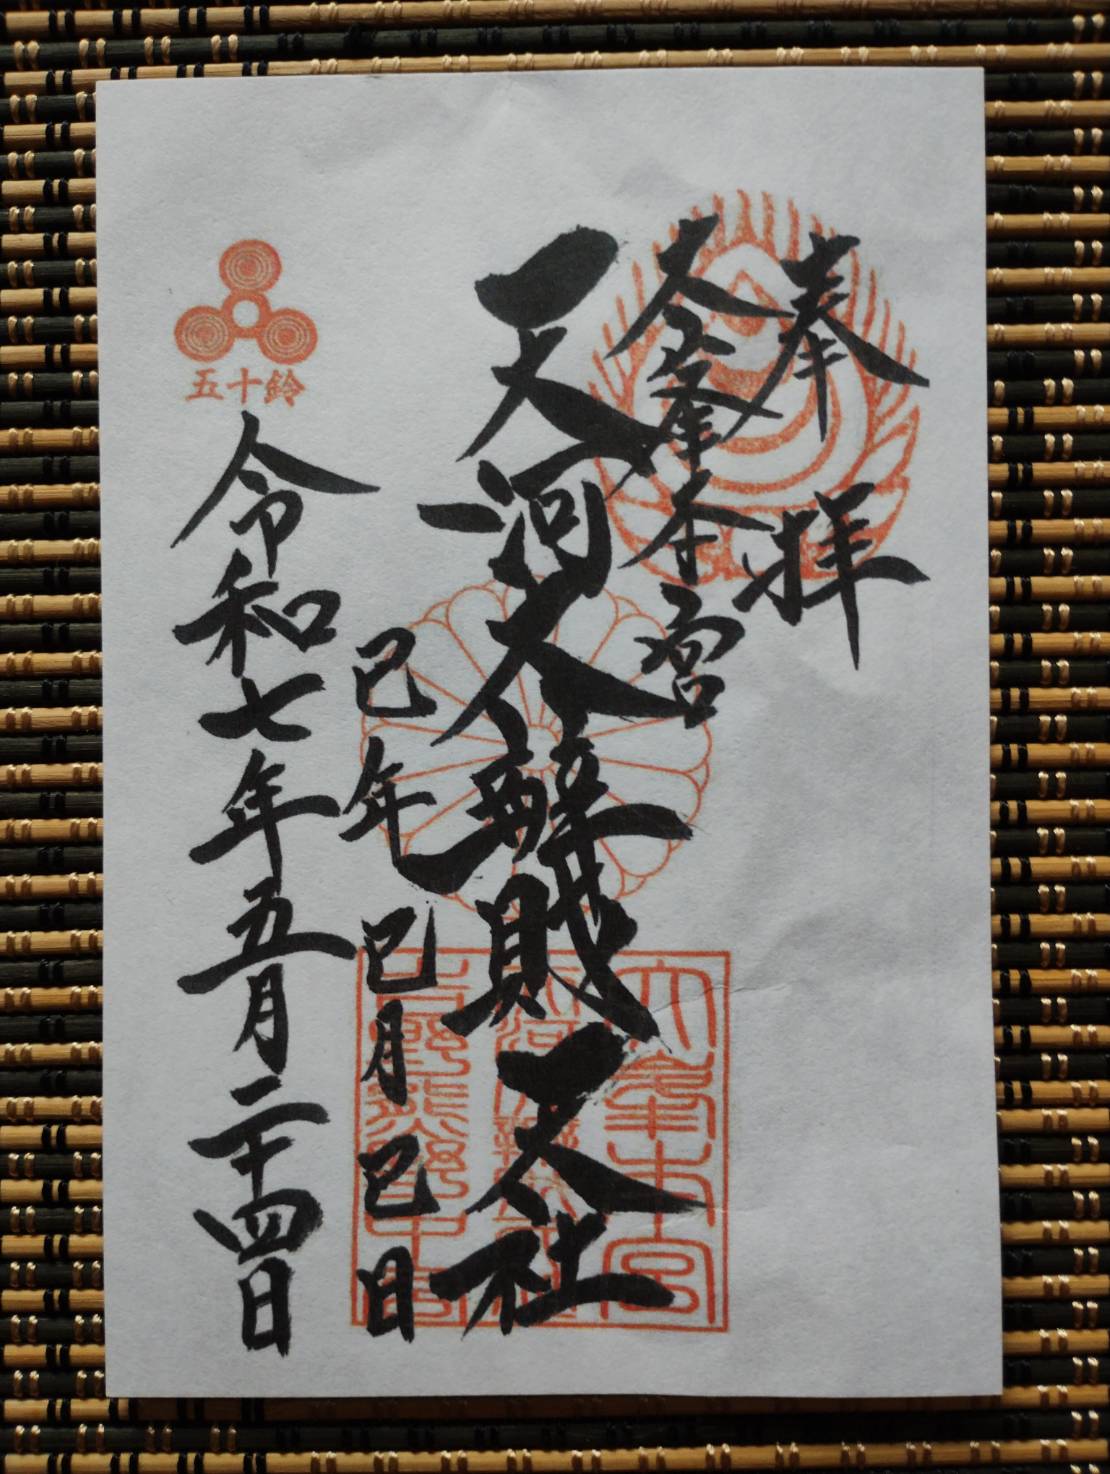 奉拝
大峯本宮
天河大辨財天社
巳年巳月巳日
五十鈴
令和七年五月二十四日
大峯本宮
天河大辨財天社
吉野熊野中宮